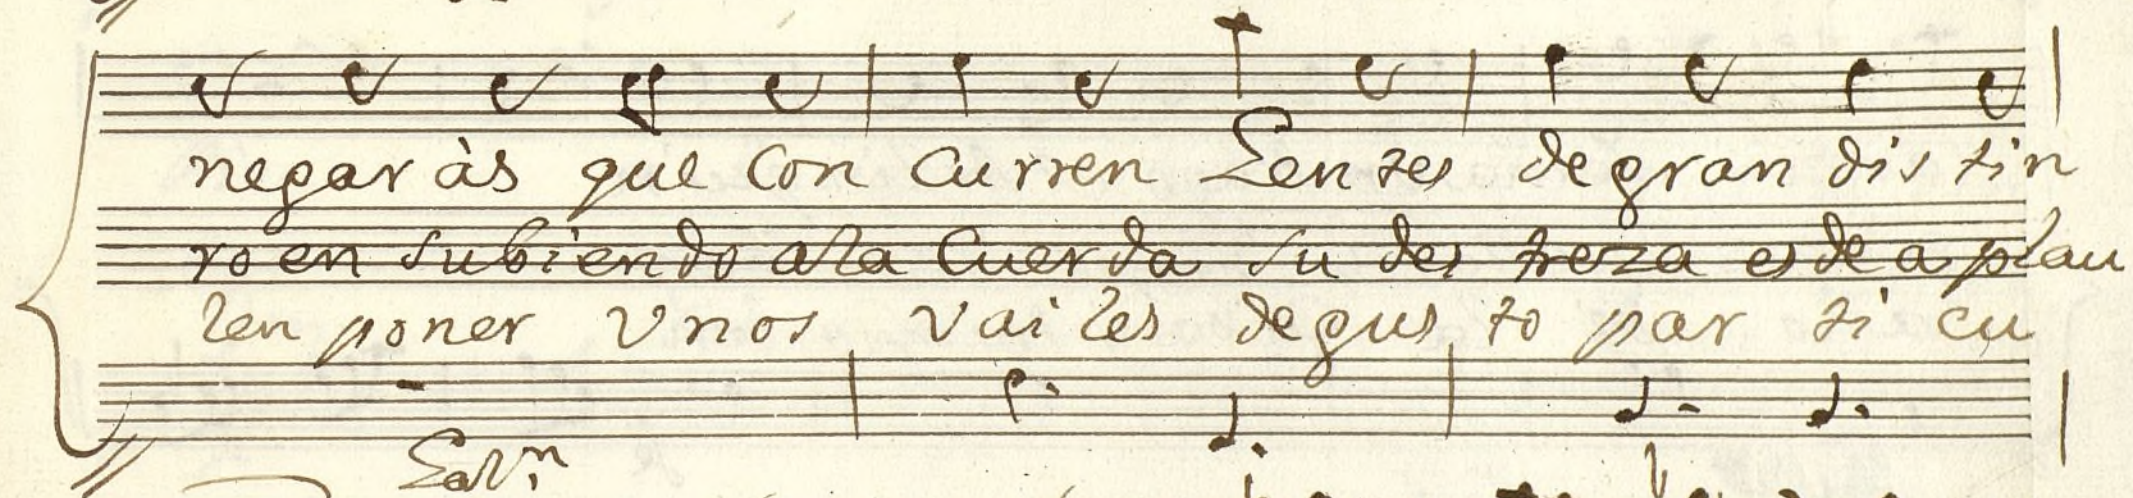 negar às que Con curren Gentes de gran dis tin
ro en subiendo a la Cuerda su des treza es de a plau
len poner Vnos vai les de gus to par ti cu